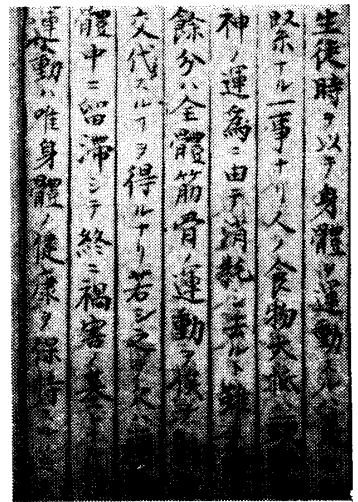 生徒時ヲ以テ身體ヲ運動スル
緊ナル一事ナリ人ノ食物大抵
神ノ運為ニ由テ消耗シ去ルト雖
餘分ハ全體筋骨ノ運動ヲ俟テ
交代スルヿヲ得ルナリ若シ之ヲ欠
體中ニ留滞シテ終ニ禍害ノ基
運動ハ唯身體ノ健康ヲ保持